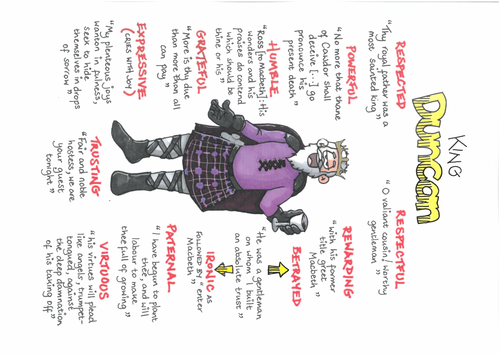 KING
Duncan
RESPECTED
"Thy royal father was a
most sainted king"
POWERFUL
"No more that thane
of Cawdor shall
deceive [...] go
pronounce his
present death"
HUMBLE
"Ross [to Macbeth]: His
wonders and his
praises do contend
which should be
thine or his"
GRATEFUL
"More is thy due
than more than all
can pay"
EXPRESSIVE
(CRIES WITH JOY)
"My plenteous joys
wanton in fulness,
seek to hide
themselves in drops
of sorrow"
RESPECTFUL
"O valiant cousin/worthy
gentleman"
REWARDING
"With his former
title greet
Macbeth"
BETRAYED
"He was a gentleman
on whom I built
an absolute trust"
IRONIC AS
FOLLOWED BY "enter
Macbeth"
PATERNAL
"I have begun to plant
thee, and will
labour to make
thee full of growing"
VIRTUOUS
"his virtues will plead
like angels, trumpet-
tongued, against
the deep damnation
of his taking off"
TRUSTING
"Fair and noble
hostess, we are
your guest
tonight"